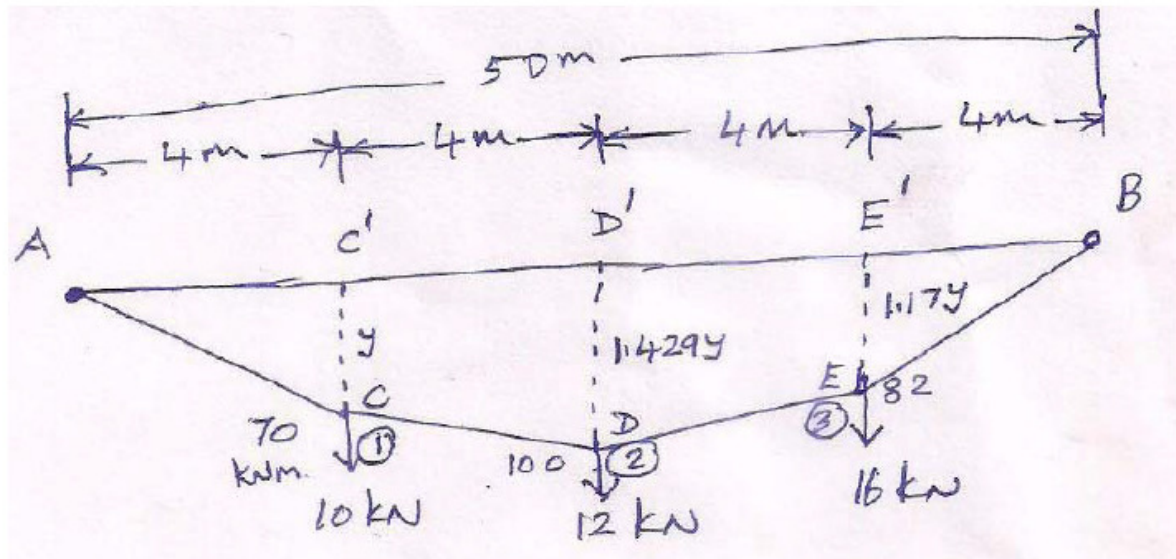 50m
4m 4m 4m 4m
A C' D' E' B
y 1.429y 1.17y
C D E
70 100 82
kNm.
1 2 3
10 kN 12 kN 16 kN